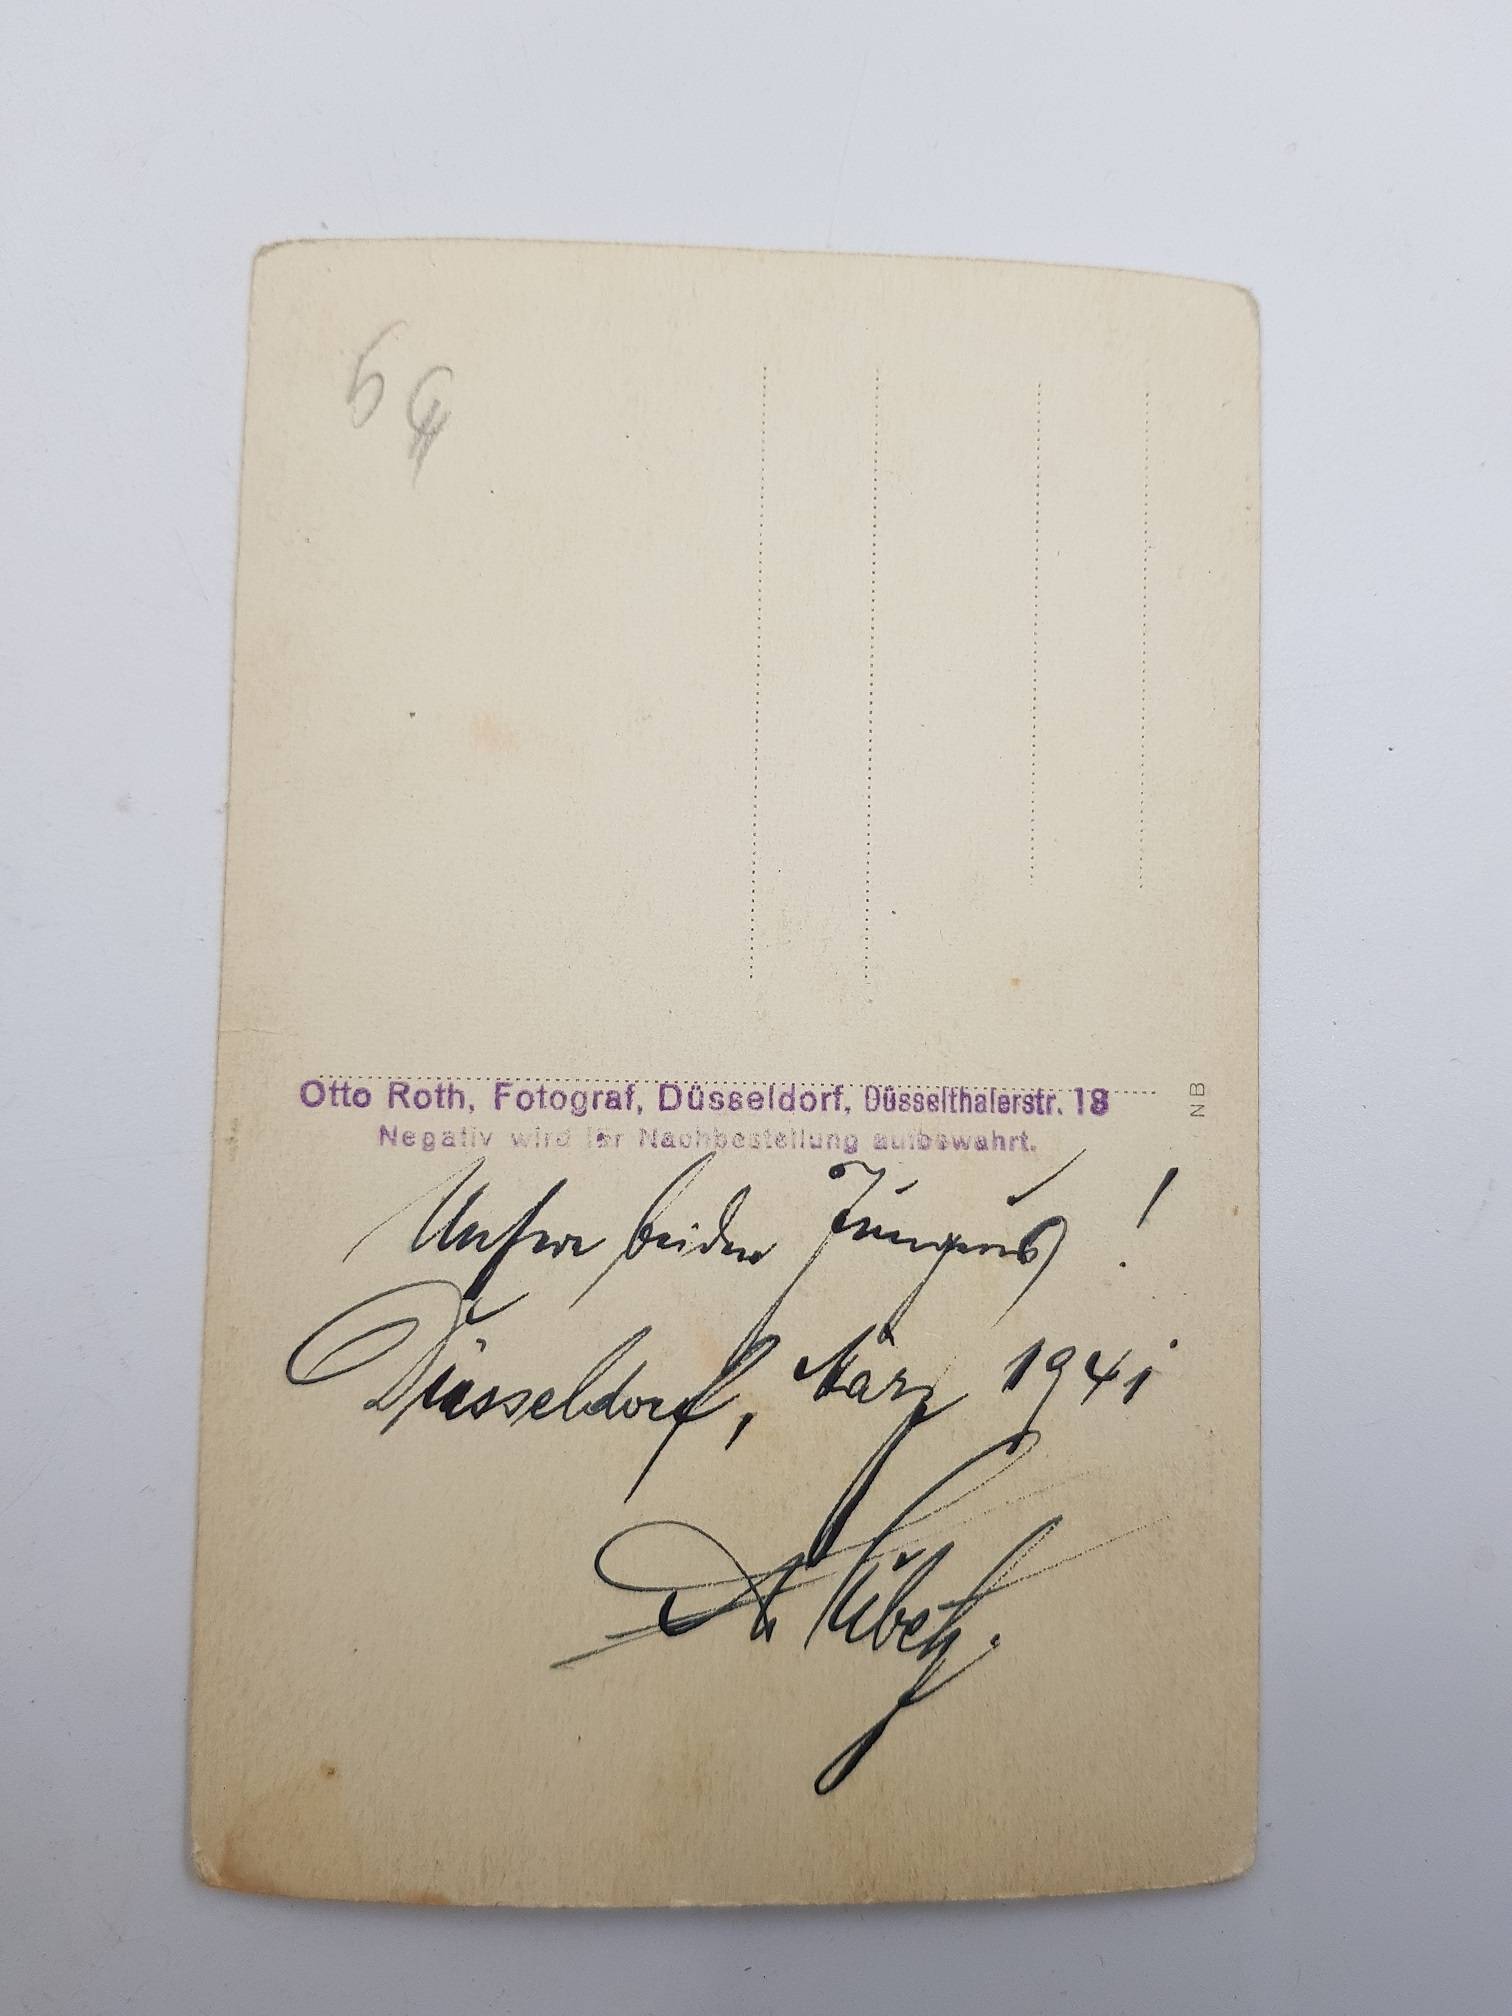 Otto Roth, Fotograf, Düsseldorf, Düsselthalerstr. 18
Negativ wird für Nachbestellung aufbewahrt.
NB
Unsere beiden Jungens!
Düsseldorf, März 1941